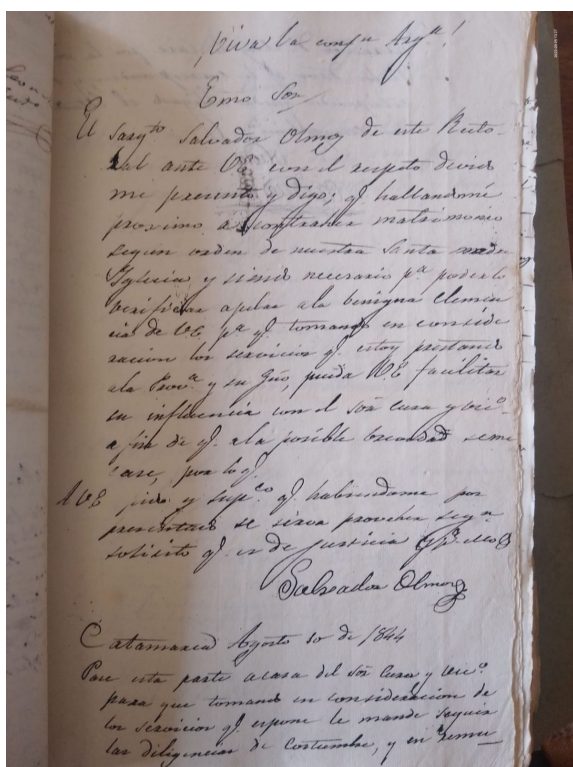 ¡Viva la confn Argna!
Exmo Sor
El sargto Salvador Olmos de este Recto-
ral ante VE con el respeto devido
me presento y digo; q.e hallandome
proximo a contraher matrimonio
segun orden de nuestra Santa madre
Yglesia y siendo necesario pa poderlo
verificar apelar ala benigna clemen
cia de VE pa q.e tomando en conside
racion los servicios q.e estoy prestando
ala Prova y su Gno, pueda VE facilitar
su influencia con el Sor Cura y Vico
afin de q.e ala posible brevedad seme
case, por lo q.e
A VE pido y supco q.e habiendome por
presentado se sirva proveher segn
solisito q.e es de Justicia
Salvador Olmos
Catamarca Agosto 10 de 1844
Pase esta parte acasa del Sor Cura y Vico
para que tomando en consideracion de
los servicios q.e espone le mande seguir
las diligencias de costumbre, y en